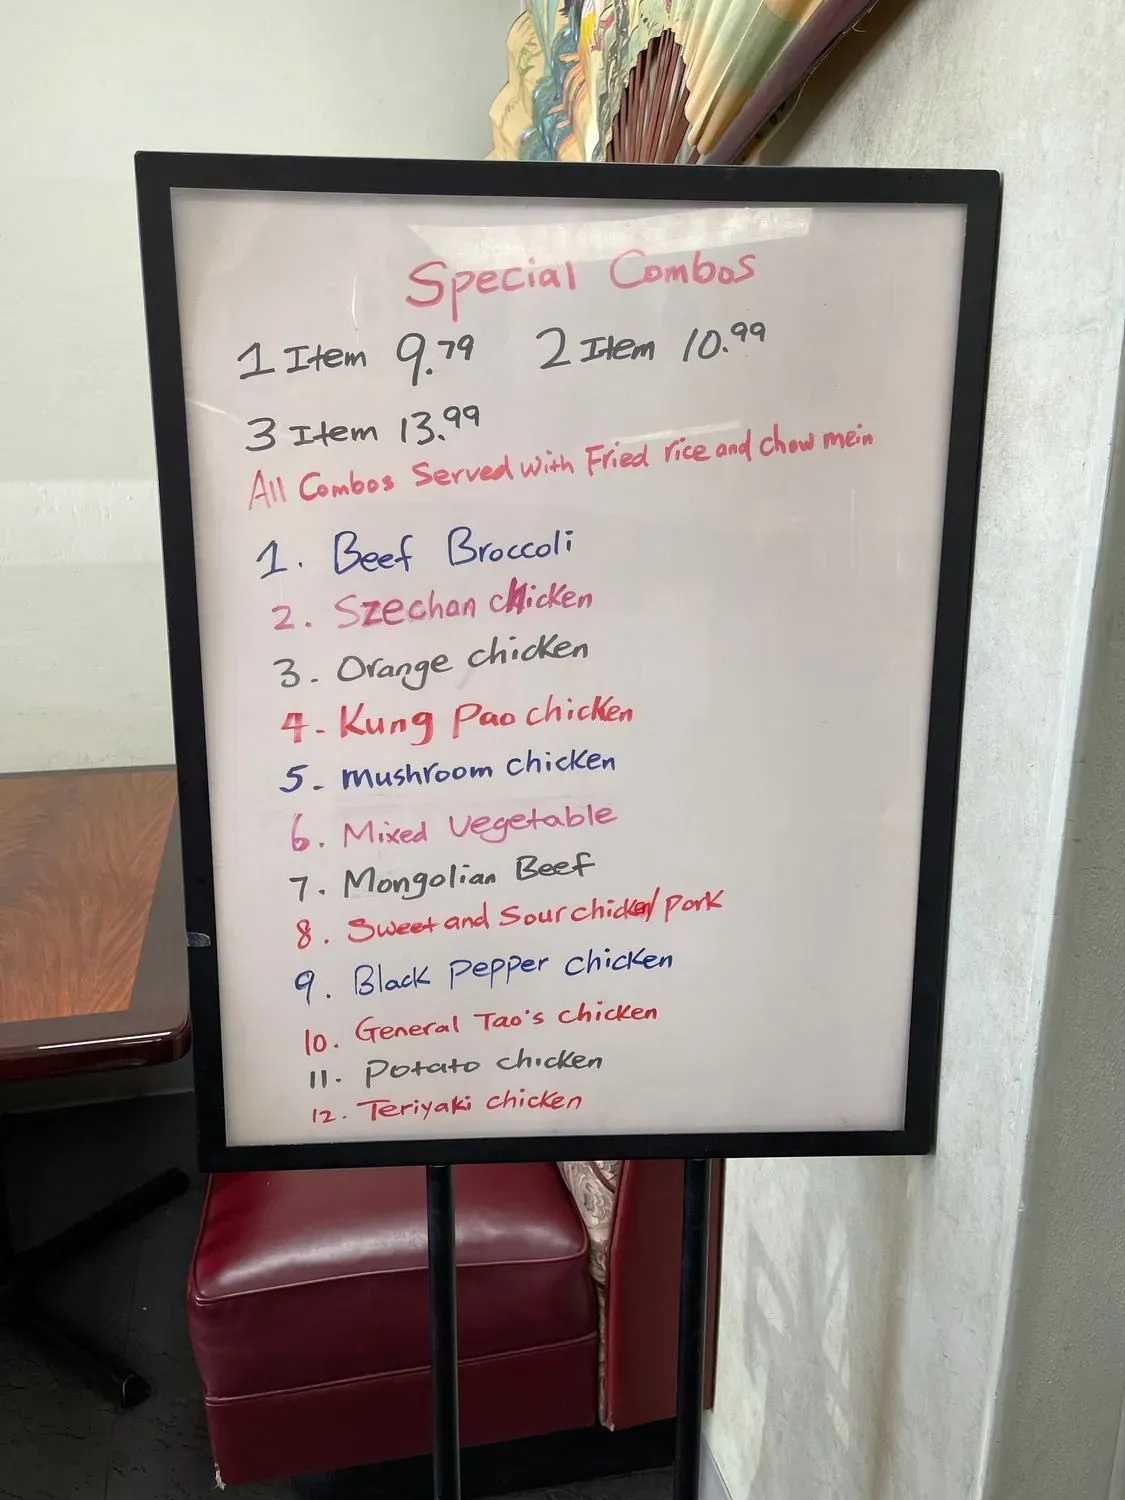 Special Combos
1 Item 9.79 2 Item 10.99
3 Item 13.99
All Combos Served with Fried rice and chow mein
1. Beef Broccoli
2. Szechan chicken
3. Orange chicken
4. Kung Pao chicken
5. mushroom chicken
6. Mixed Vegetable
7. Mongolian Beef
8. Sweet and Sour chicken/pork
9. Black pepper chicken
10. General Tao's chicken
11. Potato chicken
12. Teriyaki chicken